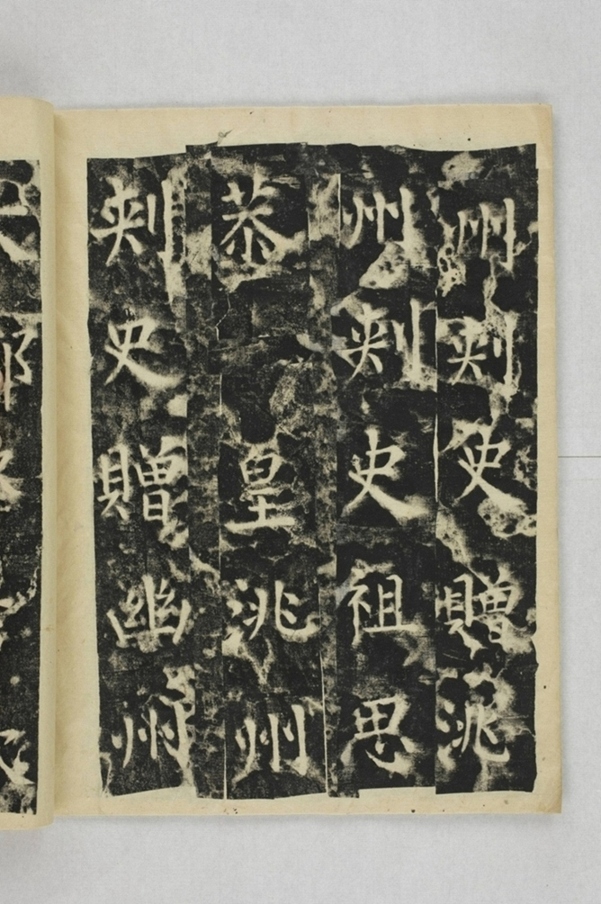 州刺史贈洮
州刺史祖思
恭皇洮州
刺史贈幽州